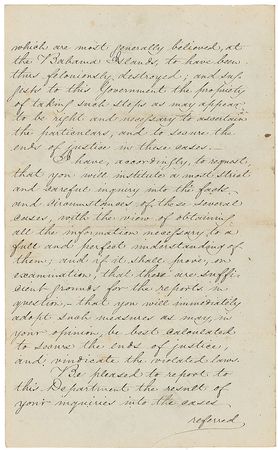 which are most generally believed, at
the Bahama Islands, to have been
thus feloniously destroyed; and sug
gests to this Government the propriety
of taking such steps as may appear
to be right and necessary to ascertain
the particulars, and to secure the
ends of justice in these cases.—
I have, accordingly, to request,
that you will institute a most strict
and careful inquiry into the facts
and circumstances of these several
cases, with the view of obtaining
all the information necessary to a
full and perfect understanding of
them; and if it shall prove, on
examination, that there are suffi-
cient grounds for the reports in
question,— that you will immediately
adopt such measures as may, in
your opinion, be best calculated
to secure the ends of justice,
and vindicate the violated laws.
Be pleased to report to
this Department the result of
your inquiries into the cases
referred,